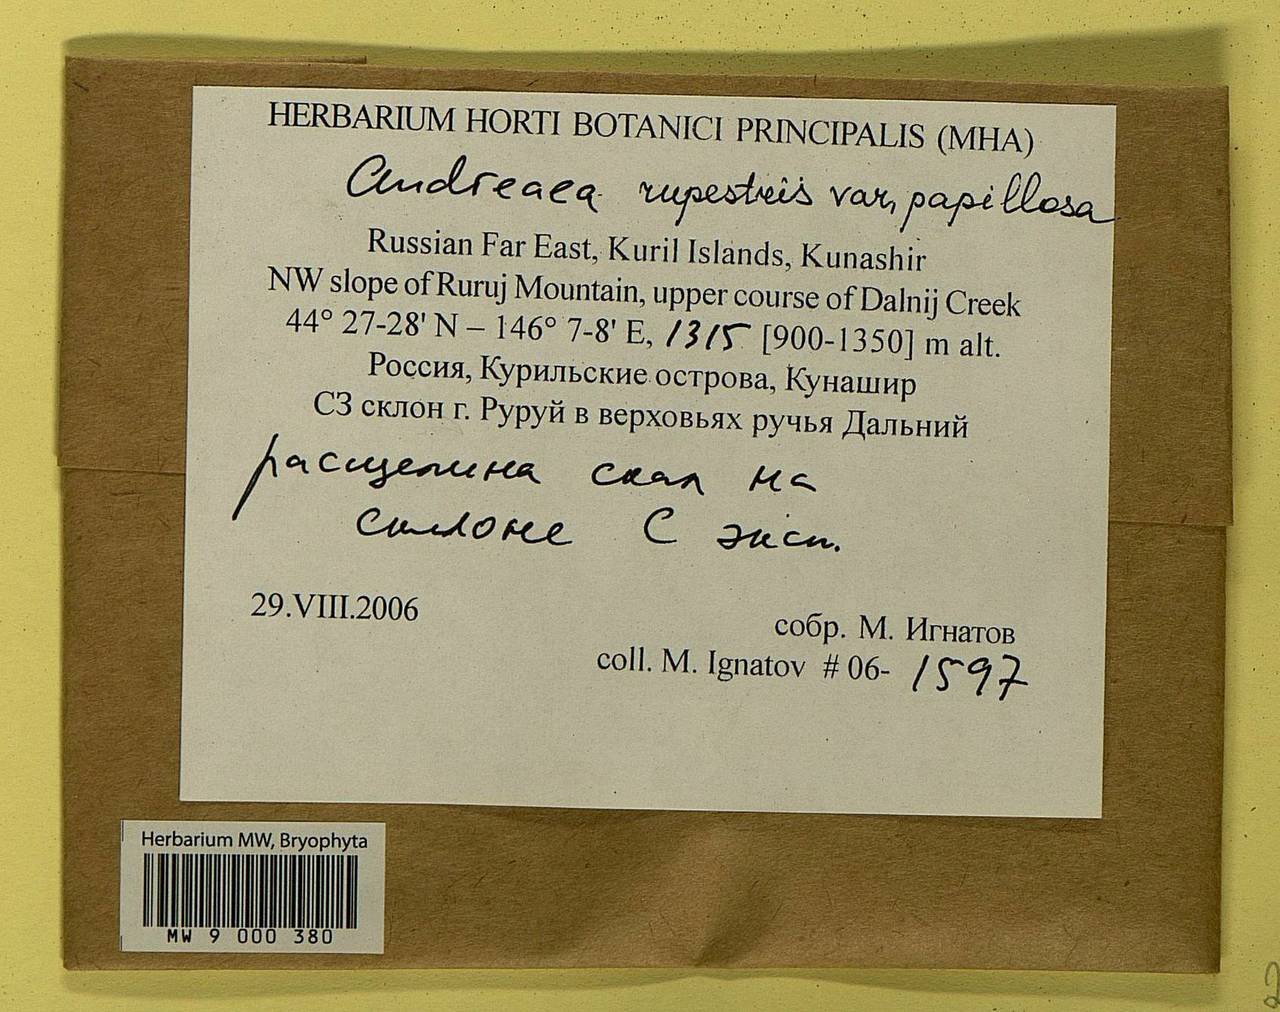 HERBARIUM HORTI BOTANICI PRINCIPALIS (MHA)
Andreaea rupestris var. papillosa
Russian Far East, Kuril Islands, Kunashir
NW slope of Ruruj Mountain, upper course of Dalnij Creek
44° 27-28' N – 146° 7-8' E, 1315 [900-1350] m alt.
Россия, Курильские острова, Кунашир
СЗ склон г. Руруй в верховьях ручья Дальний
расщелина скал на
склоне С эксп.
29.VIII.2006
собр. М. Игнатов
coll. M. Ignatov # 06- 1597
Herbarium MW, Bryophyta
MW 9 000 380